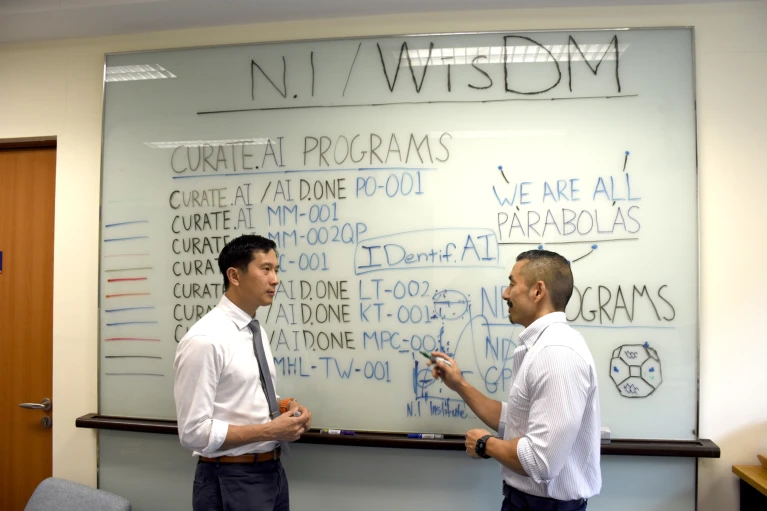 N.I / WISDM
CURATE.AI PROGRAMS
CURATE.AI / AI D.ONE PO-001
CURATE.AI MM-001
MM-002QP
-001
CURATE. AI D.ONE LT-002
CURATE. AI D.ONE KT-001
/AI D.ONE MPC-001
MHL-TW-001
IDentif.AI
WE ARE ALL
PARABOLAS
N.I Institute